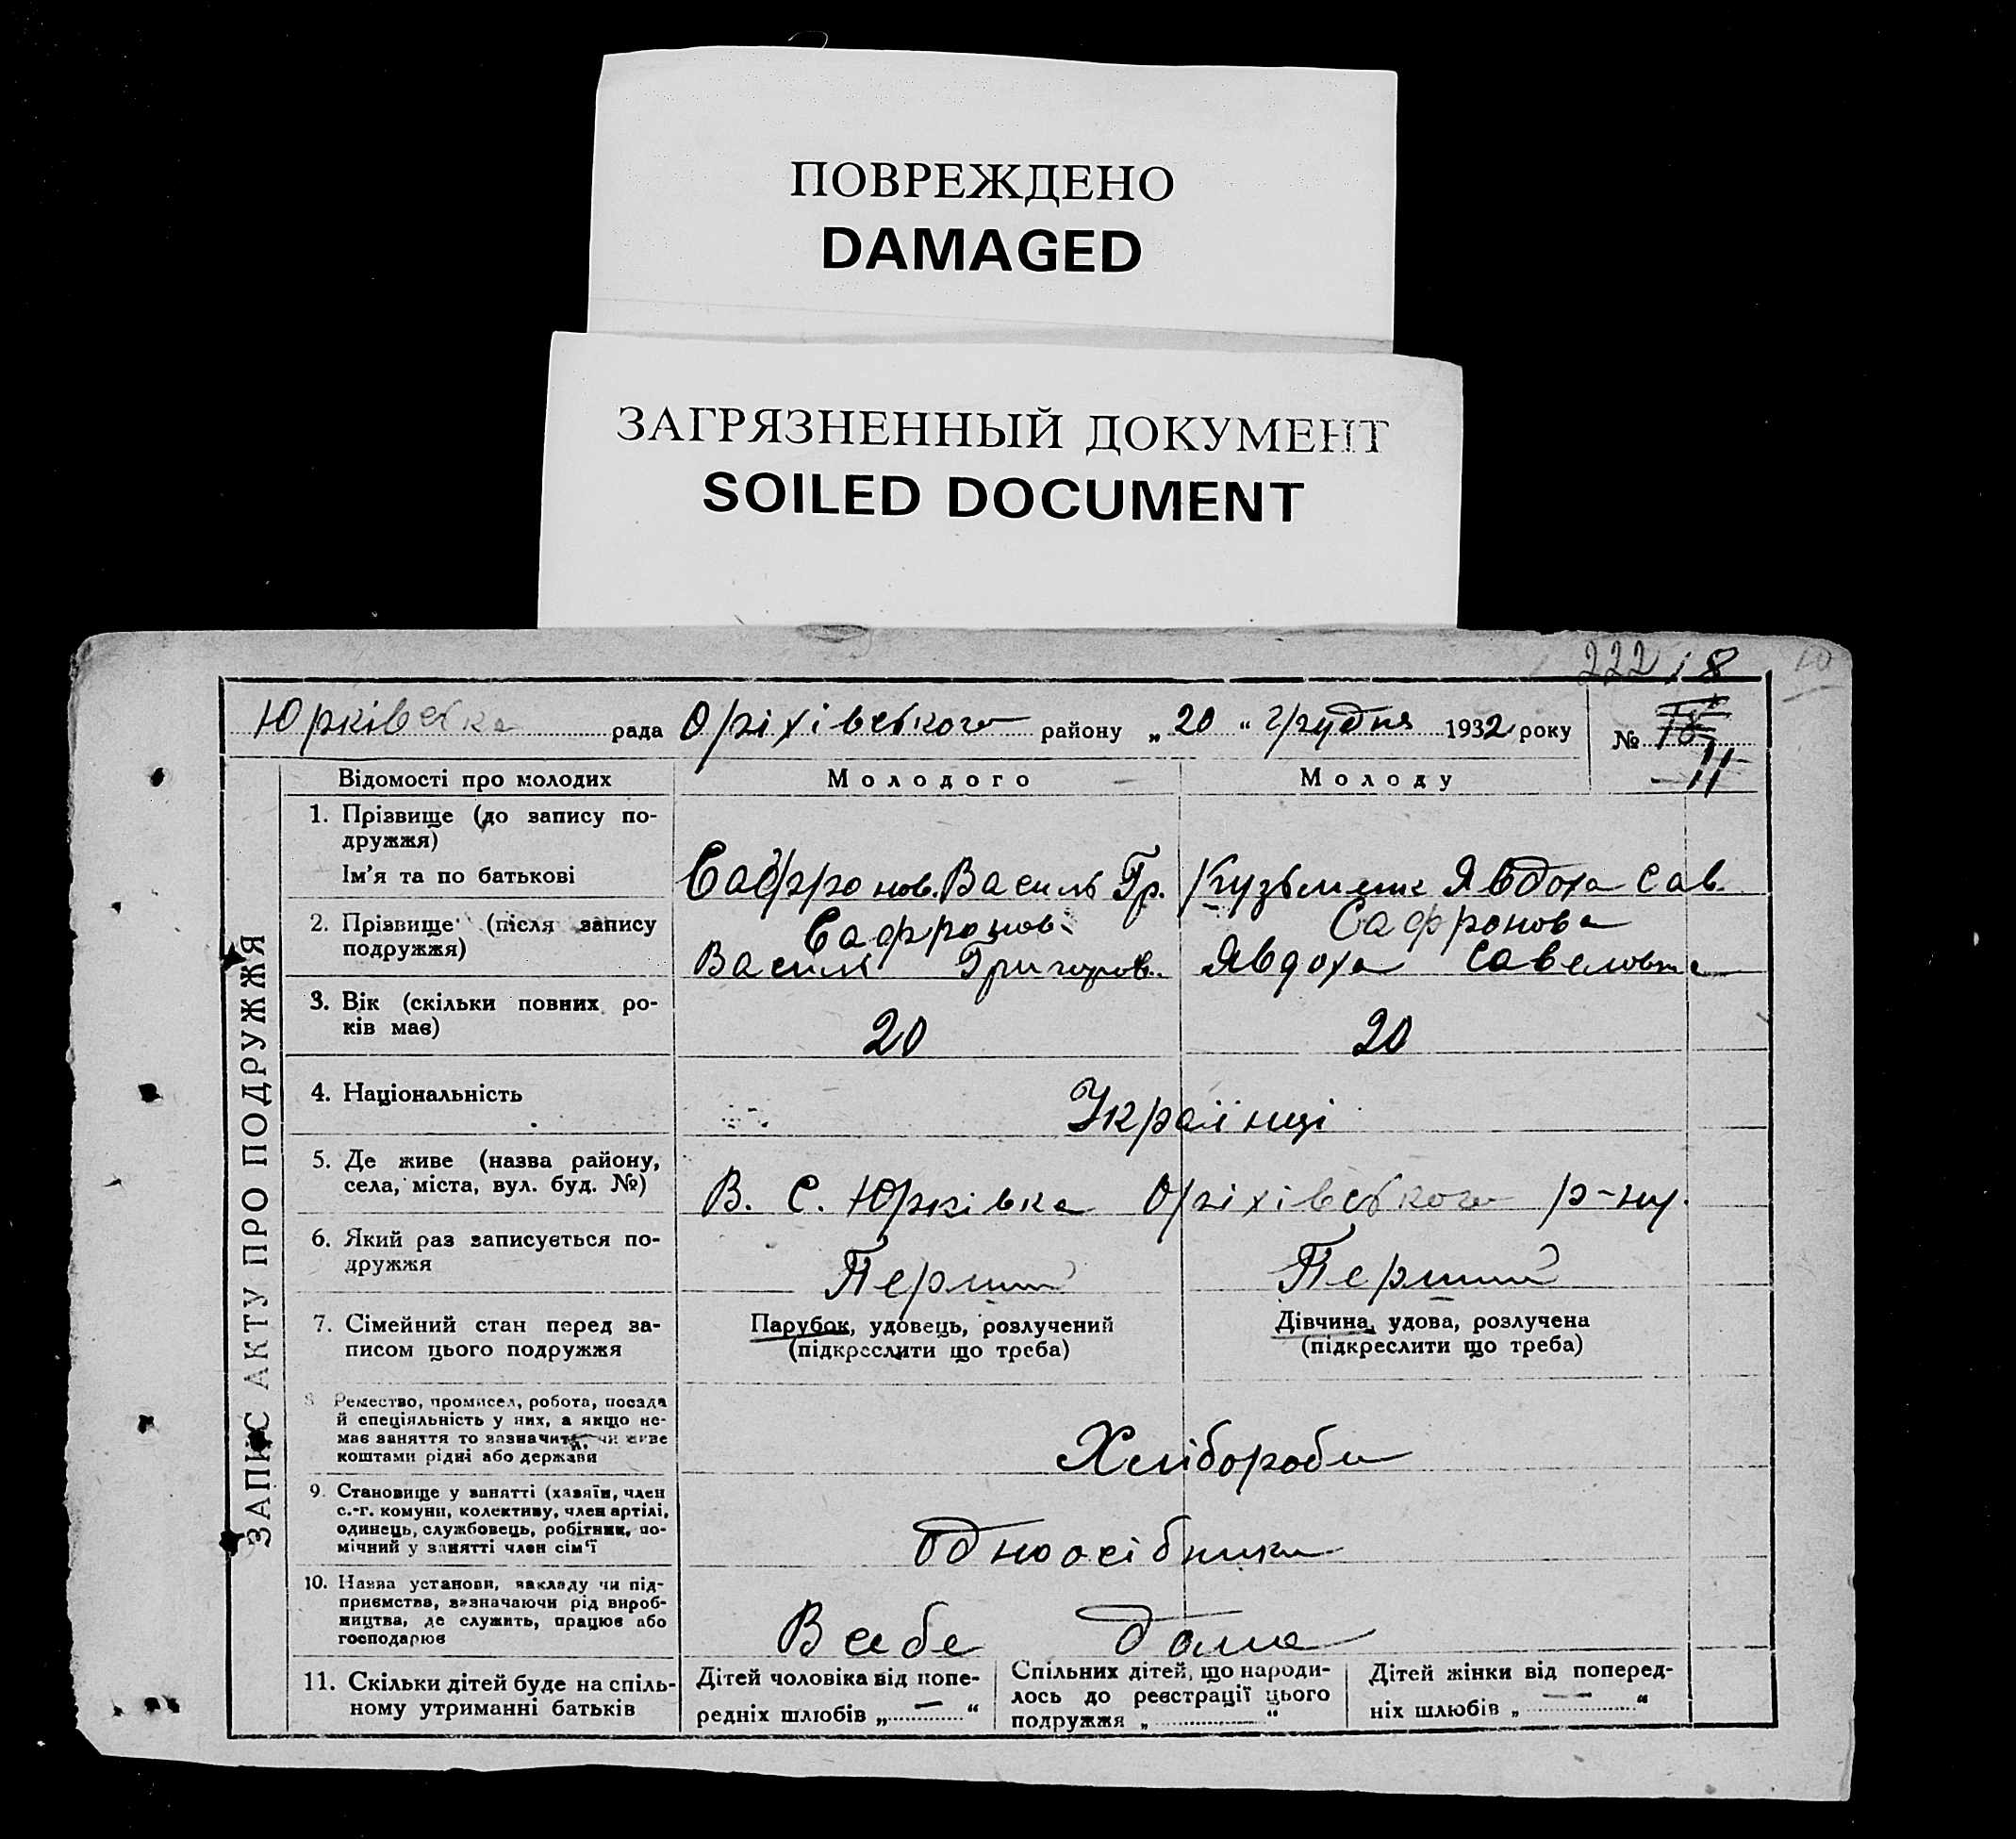 ПОВРЕЖДЕНО
DAMAGED
ЗАГРЯЗНЕННЫЙ ДОКУМЕНТ
SOILED DOCUMENT
222 18 10
Юрківська рада Оріхівського району „ 20 “ грудня 1932 року № 18
11
Відомості про молодих Молодого Молоду
ЗАПИС АКТУ ПРО ПОДРУЖЖЯ
1. Прізвище (до запису по-
дружжя)
Ім'я та по батькові Сафронов. Василь Гр. Кузьменк Явдоха Сав.
2. Прізвище (після запису Сафронов Сафронова
подружжя) Василь Григоров. Явдоха Савеловна
3. Вік (скільки повних ро-
ків має) 20 20
4. Національність Українці
5. Де живе (назва району,
села, міста, вул. буд. №) В. С. Юрківка Оріхівського р-ну.
6. Який раз записується по-
дружжя Перший Перший
7. Сімейний стан перед за- Парубок, удовець, розлучений Дівчина, удова, розлучена
писом цього подружжя (підкреслити що треба) (підкреслити що треба)
8 Ремество, промисел, робота, посада
й спеціяльність у них, а якщо не-
має заняття то зазначити, чи живе
коштами рідні або держави Хлібороби
9. Становище у занятті (хазяїн, член
с.-г. комуни, колективу, член артілі,
одинець, службовець, робітник, по-
мічний у занятті член сім'ї Одноосібники
10. Назва установи, закладу чи під-
приємства, зазначаючи рід вироб-
ництва, де служить, працює або
господарює В себе дома
11. Скільки дітей буде на спіль-
ному утриманні батьків
Дітей чоловіка від попе-
редніх шлюбів „ — “
Спільних дітей, що народи-
лось до реєстрації цього
подружжя „ “
Дітей жінки від поперед-
ніх шлюбів „ — “